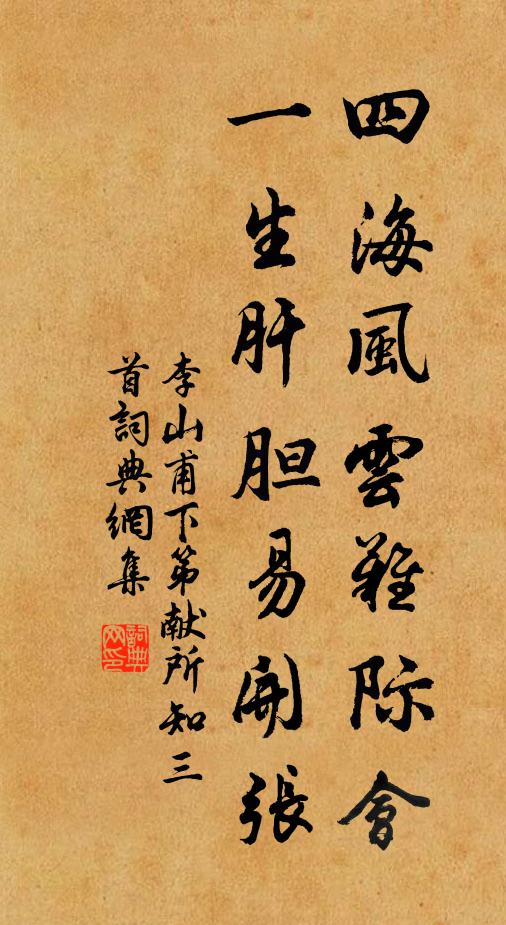 四海風雲難际會
一生肝胆易開張
李山甫下第献所知三
首詞典網集
詞典
网印